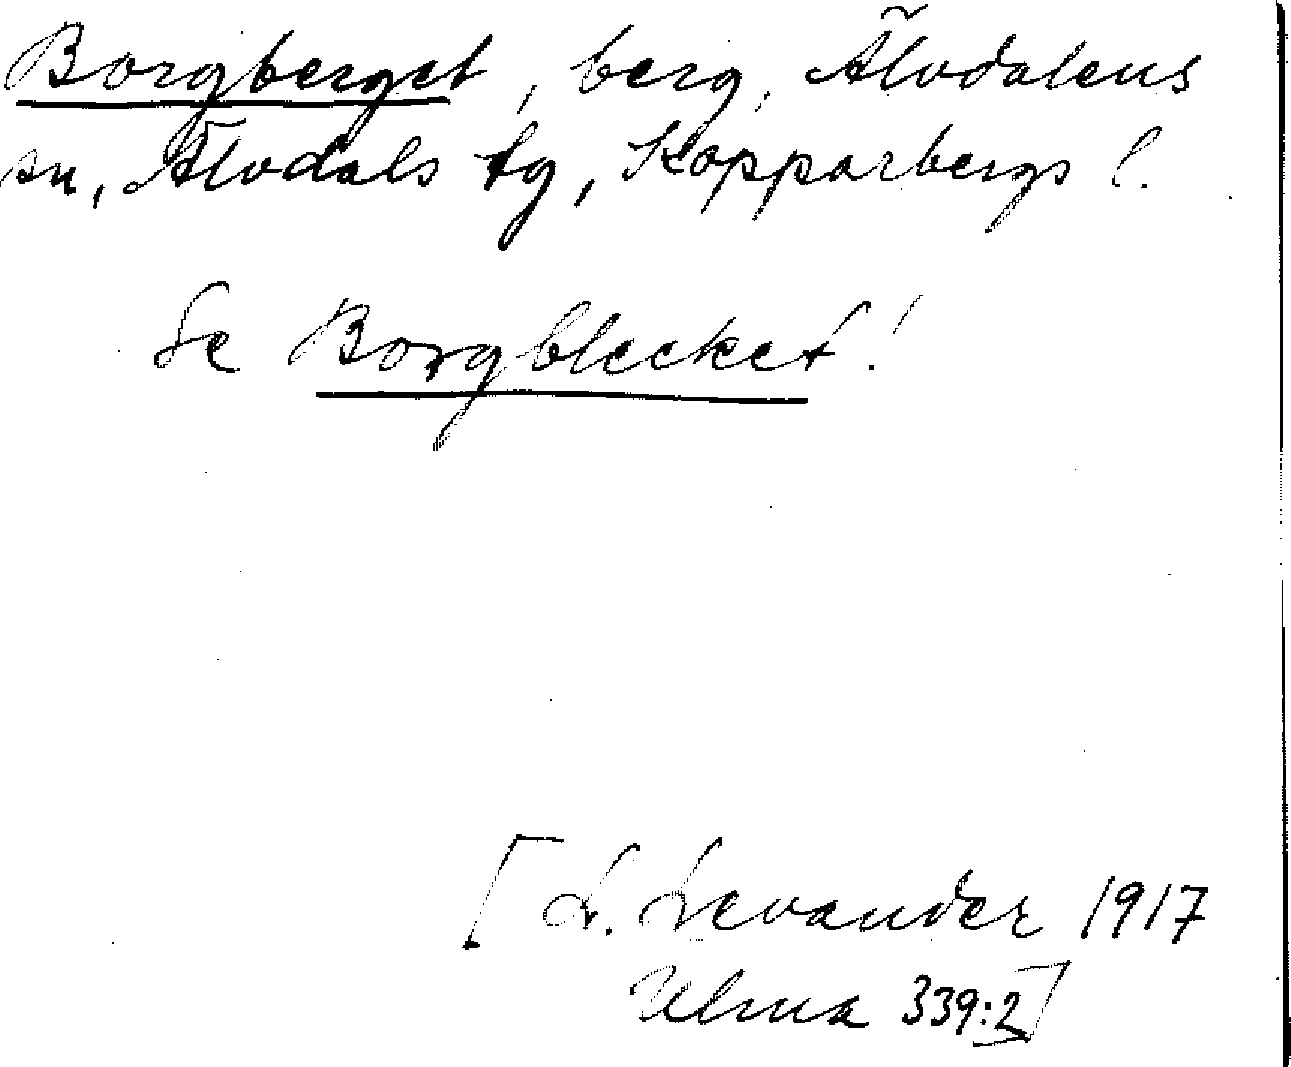 Borgberget, berg, Älvdalens
sn, Älvdals tg, Kopparbergs l.
Se Borgblecket!
[L. Levander 1917
Ulma 339:2]